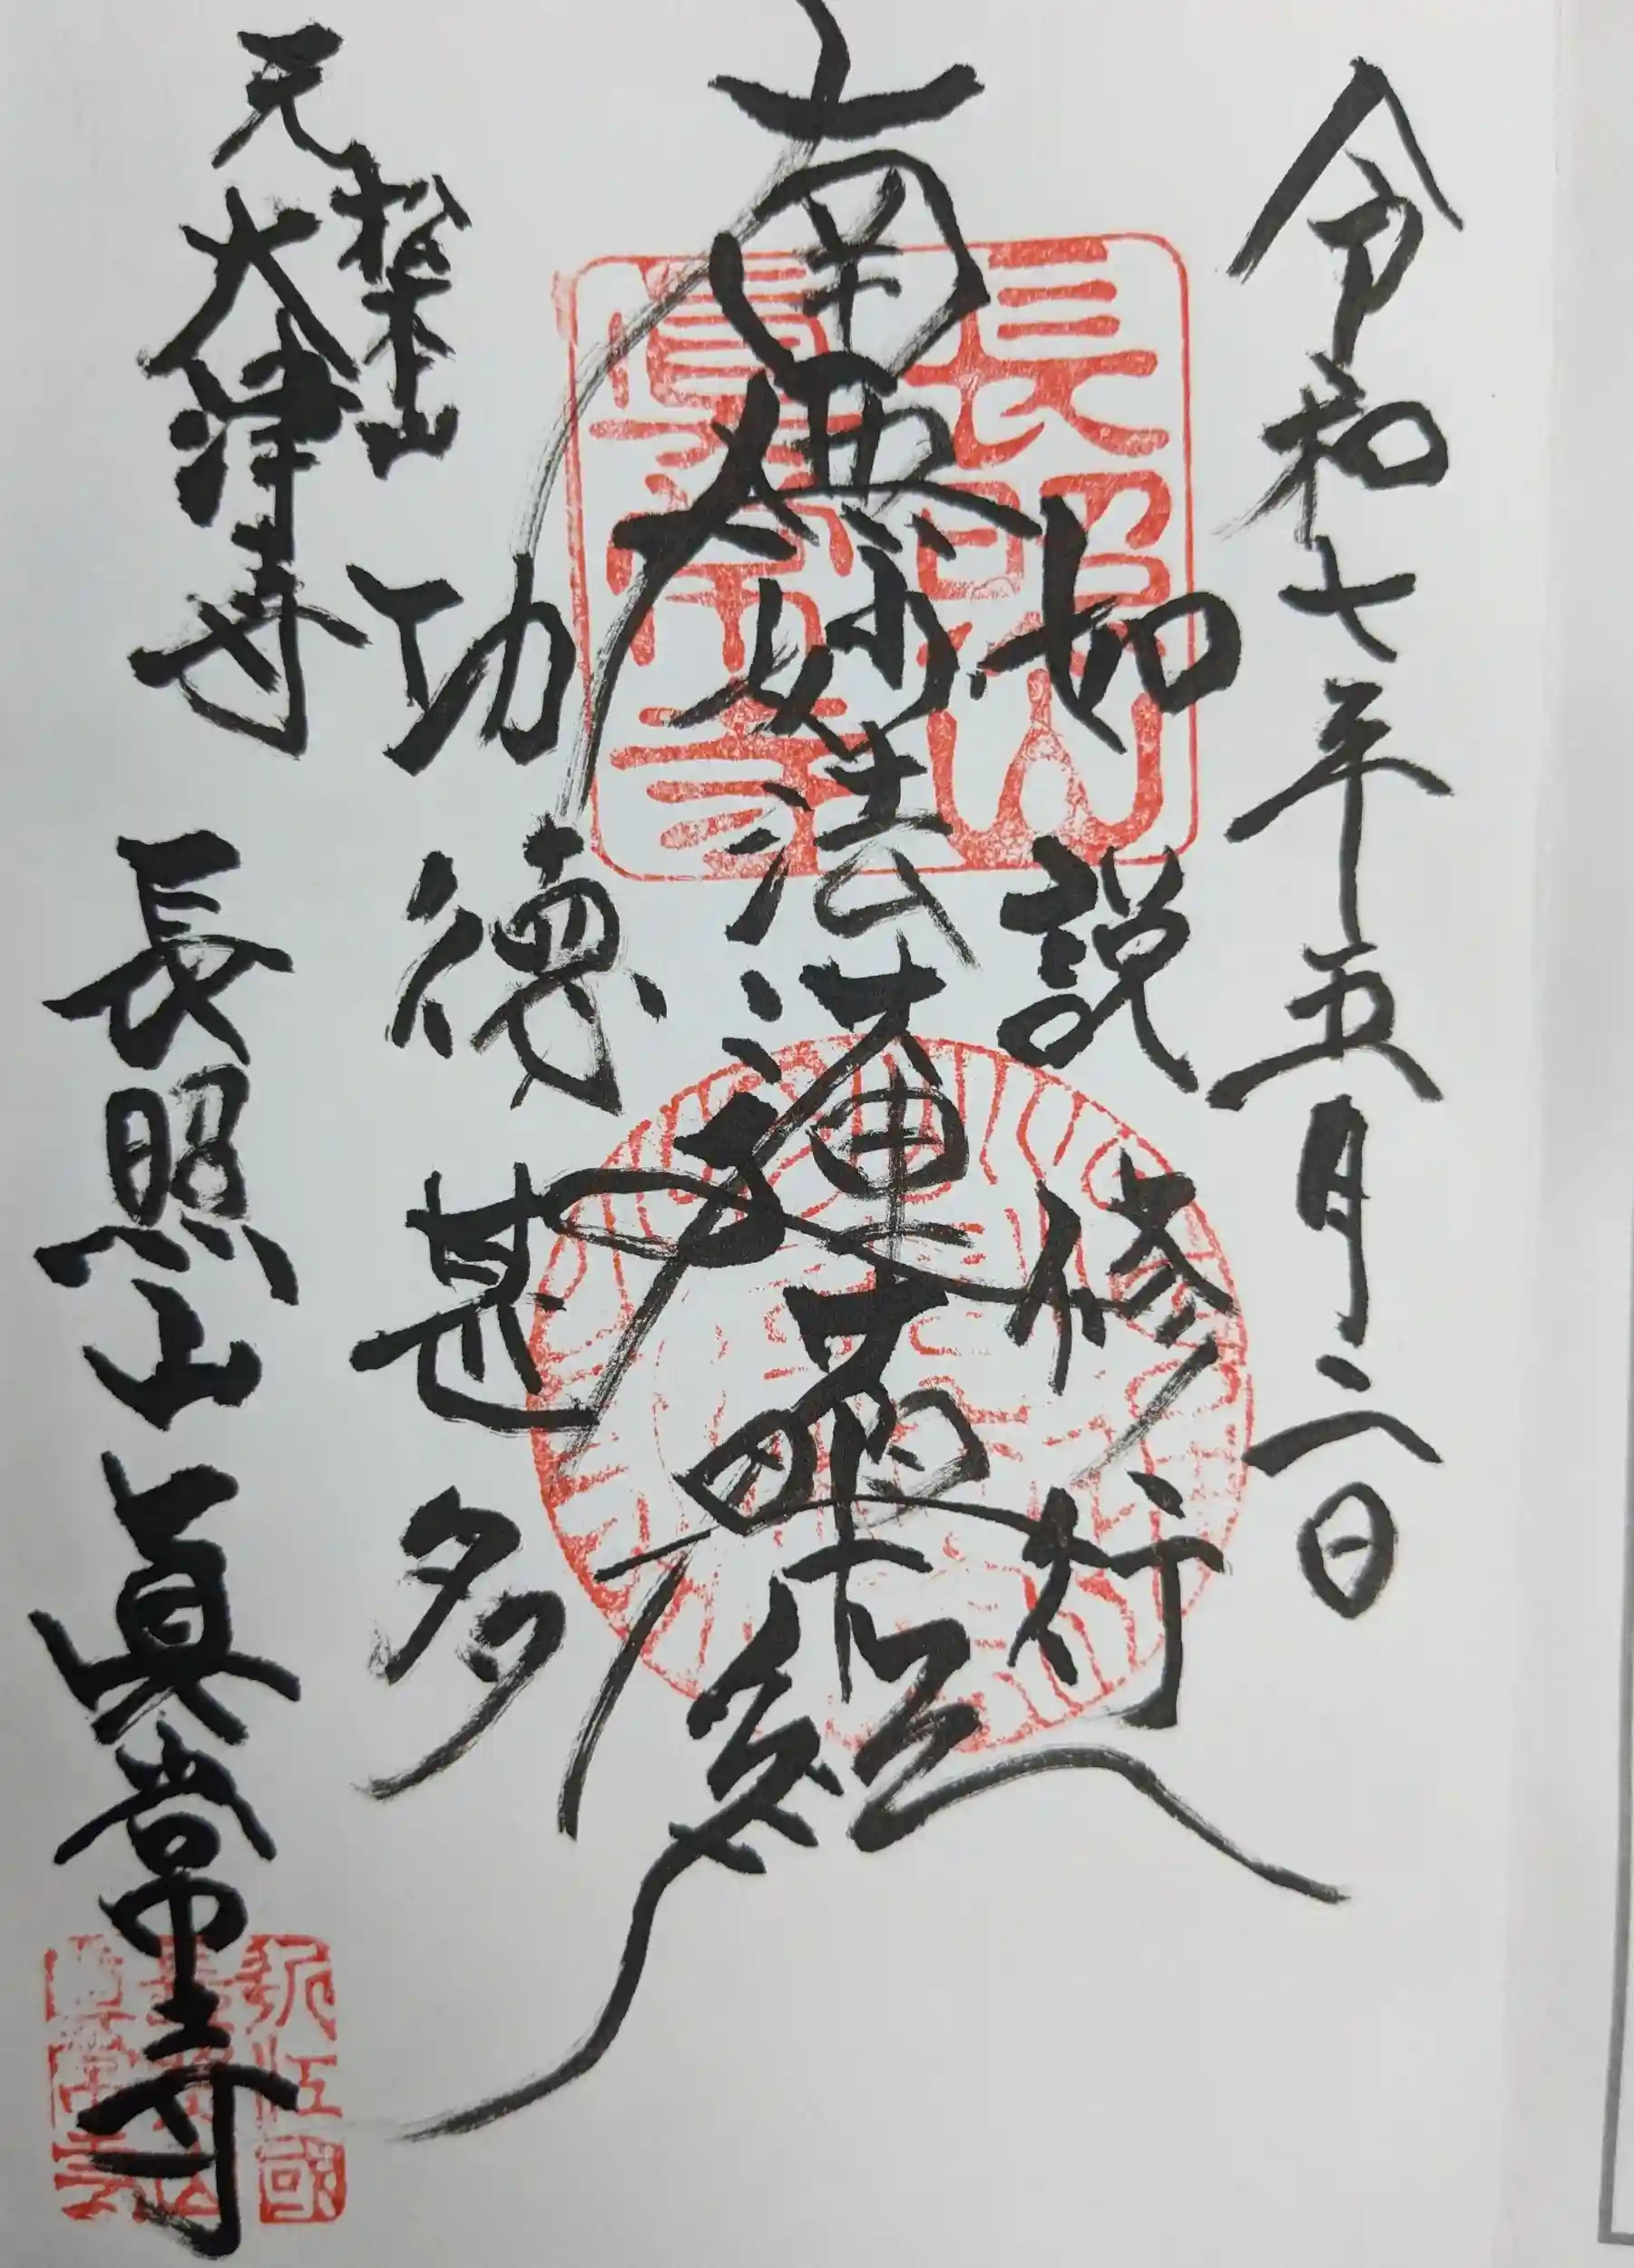 令和七年五月二日
如説修行
南無妙法蓮華経
功徳甚多
元
松本山
大津寺
長照山眞常寺
長照山
眞常寺
近江國